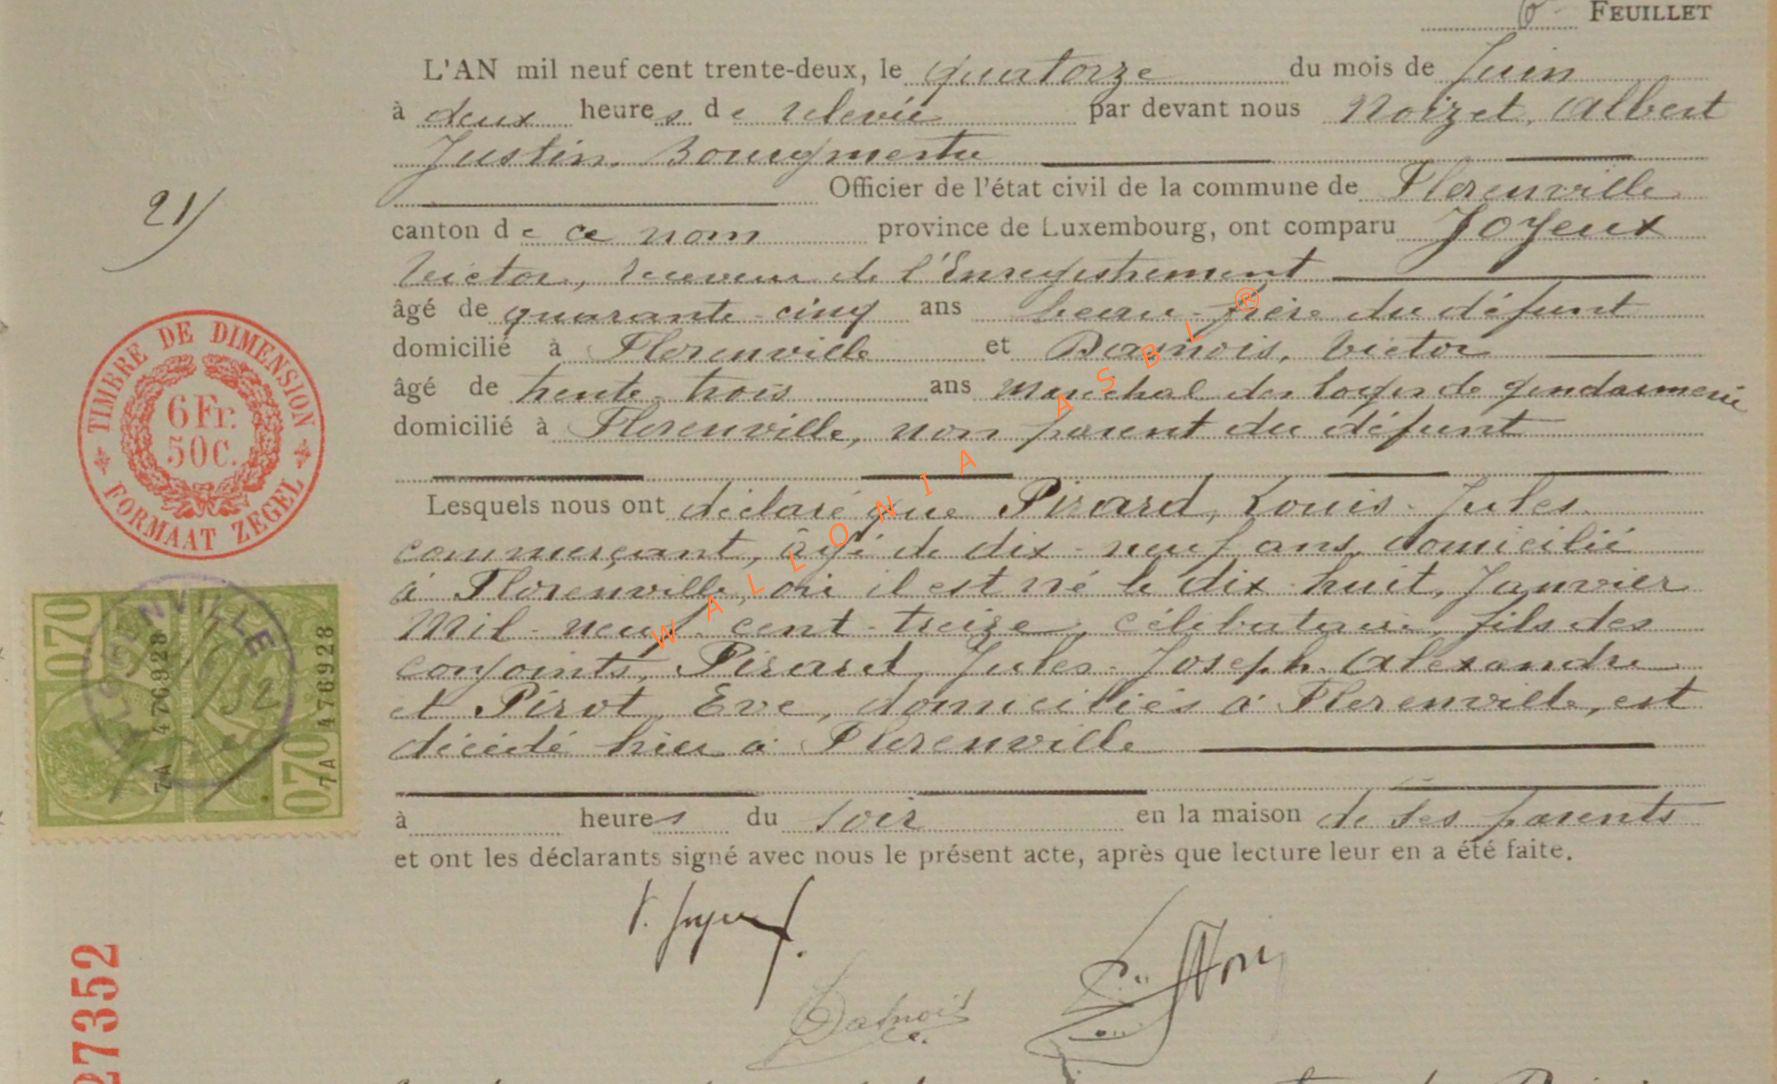 6e FEUILLET
L'AN mil neuf cent trente-deux, le quatorze du mois de Juin
à deux heures de relevée par devant nous Noïzet, Albert
Justin, Bourgmestre
Officier de l'état civil de la commune de Florenville
canton de ce nom province de Luxembourg, ont comparu Joyeux
Victor, receveur de l'Enregistrement
âgé de quarante-cinq ans beau-frère du défunt
domicilié à Florenville et Dasnois, Victor
âgé de trente-trois ans Maréchal des logis de gendarmerie
domicilié à Florenville, non parent du défunt
Lesquels nous ont déclaré que Pirard, Louis-Jules
commerçant, âgé de dix-neuf ans, domicilié
à Florenville, où il est né le dix-huit Janvier
Mil-neuf-cent-treize, célibataire, fils des
conjoints, Pirard Jules-Joseph-Alexandre
et Pirot Eve, domiciliés à Florenville, est
décédé hier à Florenville
à heures du soir en la maison de ses parents
et ont les déclarants signé avec nous le présent acte, après que lecture leur en a été faite.
V. Joyeux
Dasnois
21/
TIMBRE DE DIMENSION
6 Fr.
50 C.
FORMAAT ZEGEL
FLORENVILLE
070
7A 476928
7A 476928
070
27352
WALLONIA ASBL ®